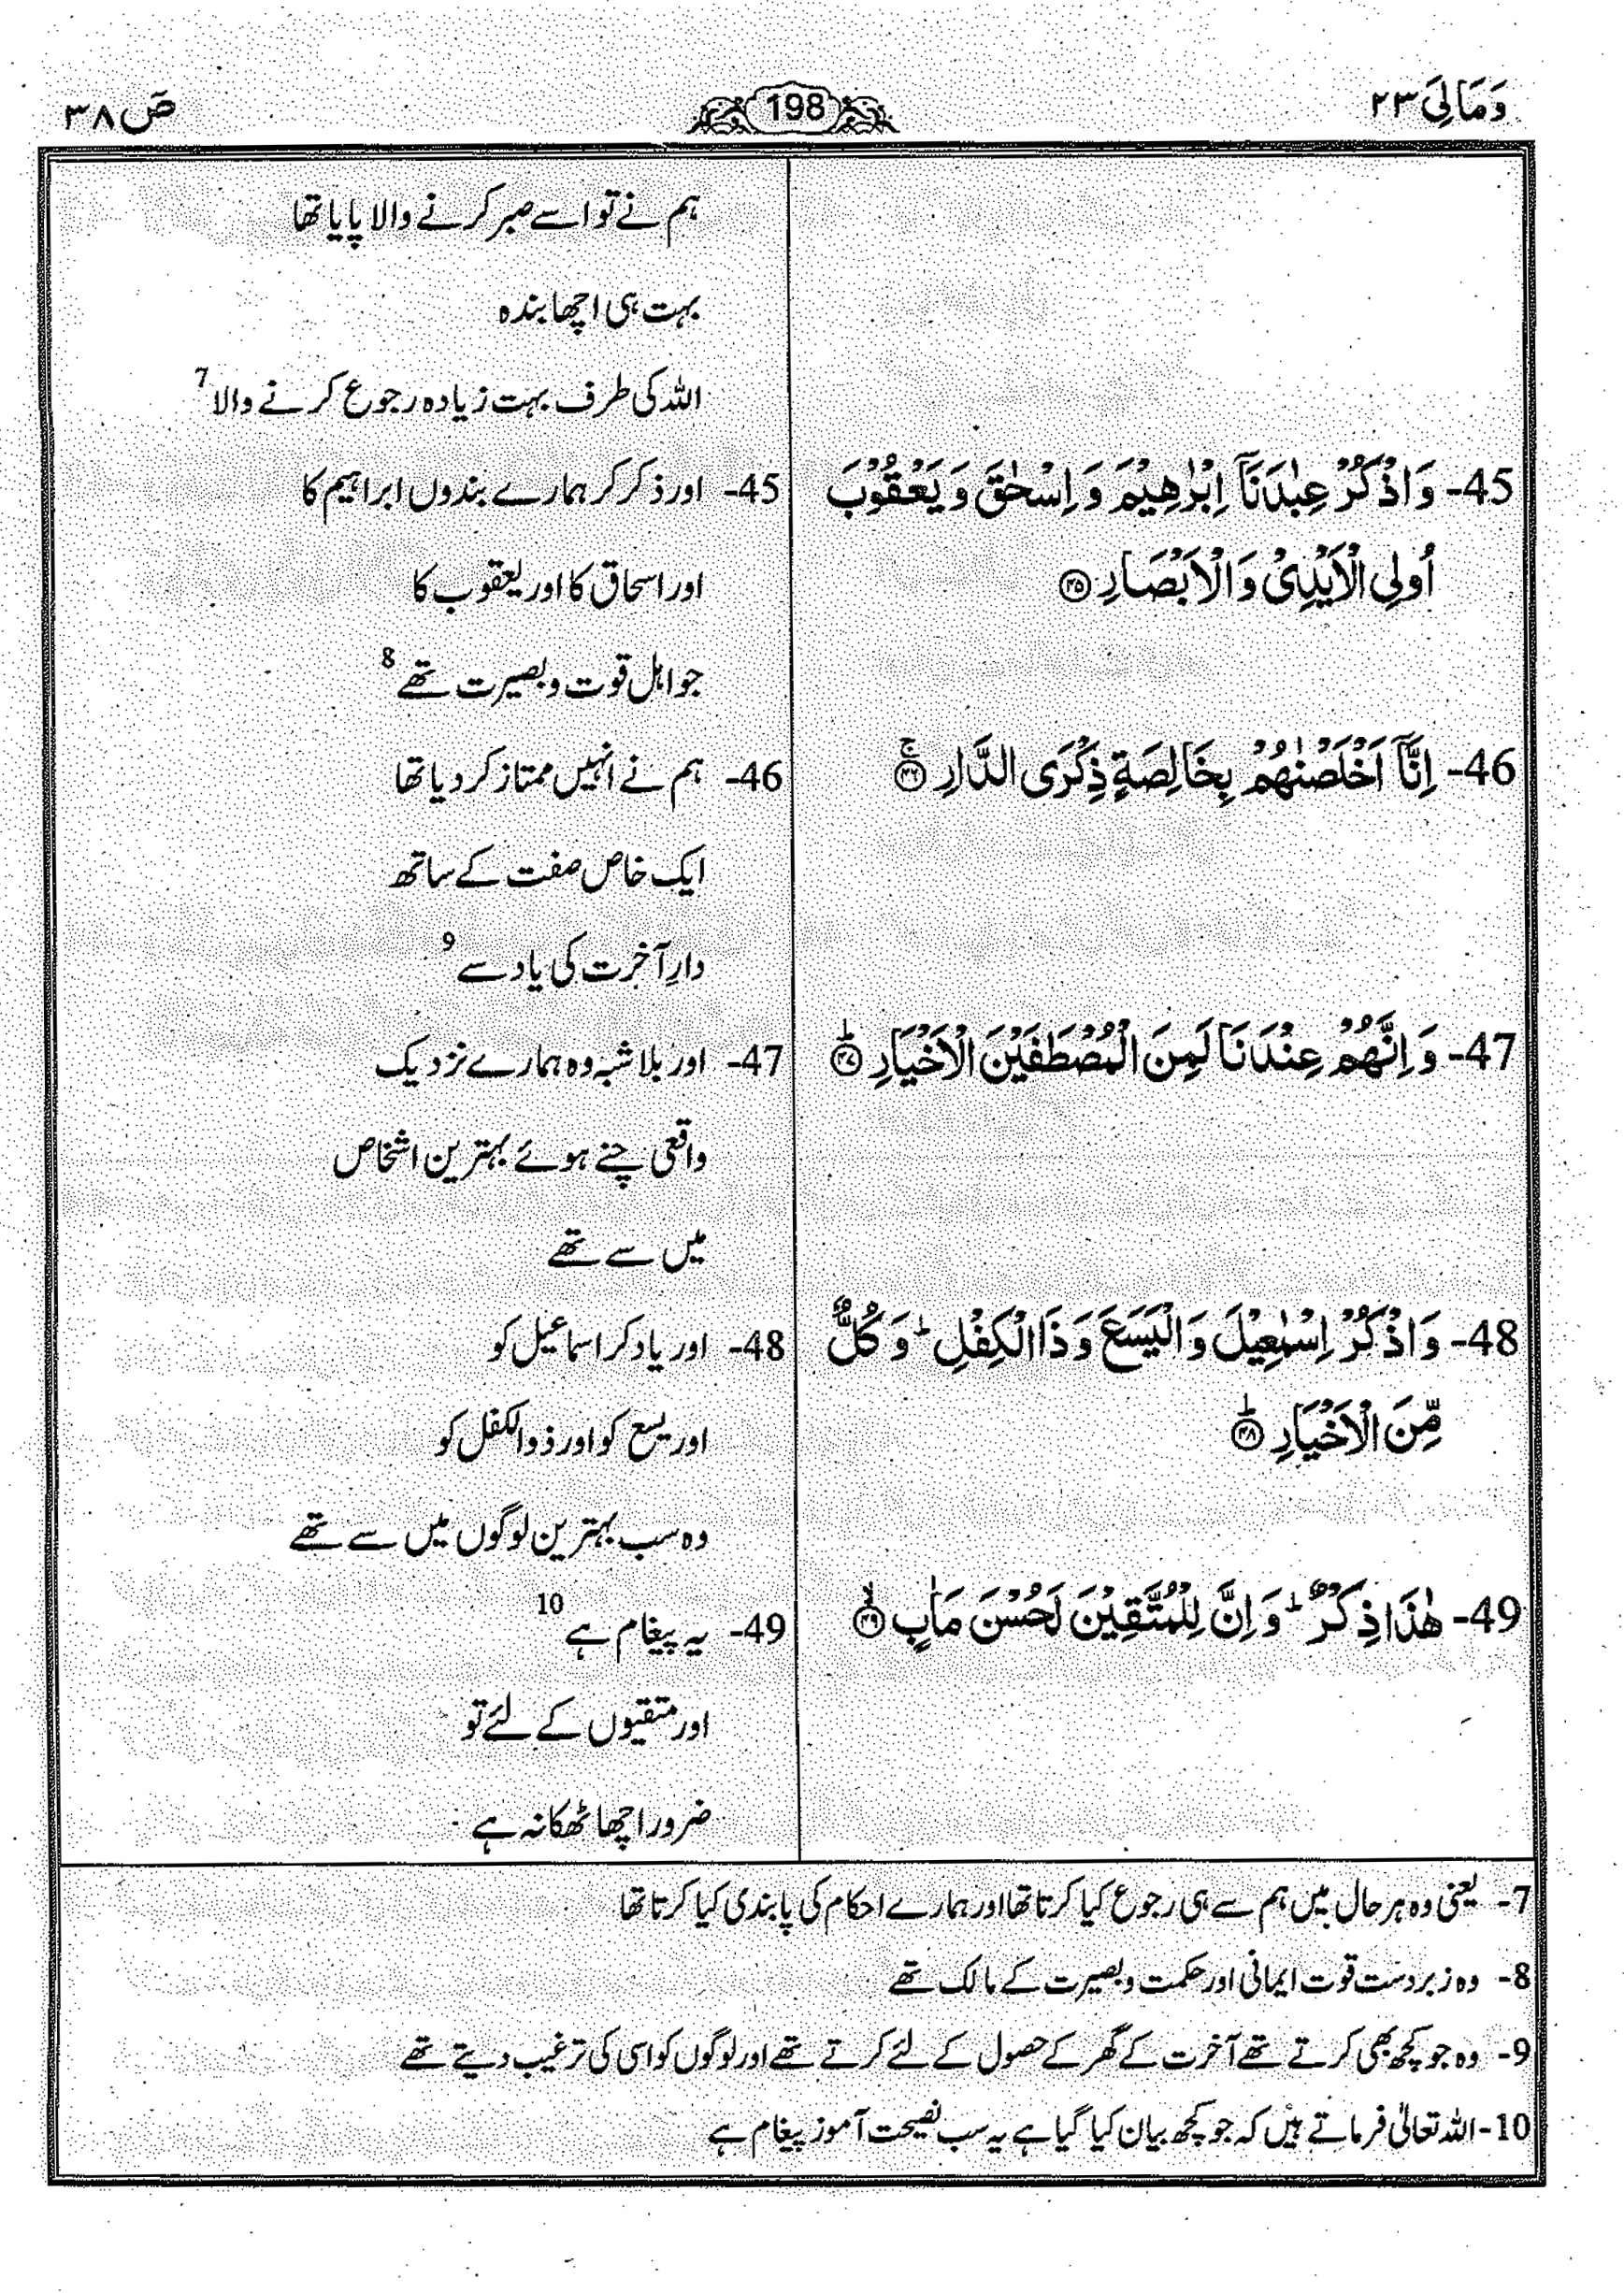 وَمَالِیَ ۲۳
198
صٓ ۳۸
ہم نے تو اسے صبر کرنے والا پایا تھا
بہت ہی اچھا بندہ
اللہ کی طرف بہت زیادہ رجوع کرنے والا 7
45- وَاذْكُرْ عِبٰدَنَاۤ اِبْرٰهِیْمَ وَ اِسْحٰقَ وَ یَعْقُوْبَ
اُولِی الْاَیْدِیْ وَ الْاَبْصَارِ ۴۵
45- اور ذکر کر ہمارے بندوں ابراہیم کا
اور اسحاق کا اور یعقوب کا
جو اہل قوت و بصیرت تھے 8
46- اِنَّاۤ اَخْلَصْنٰهُمْ بِخَالِصَةٍ ذِكْرَی الدَّارِ ۚ۴۶
46- ہم نے انہیں ممتاز کر دیا تھا
ایک خاص صفت کے ساتھ
دارِ آخرت کی یاد سے 9
47- وَ اِنَّهُمْ عِنْدَنَا لَمِنَ الْمُصْطَفَیْنَ الْاَخْیَارِ ؕ۴۷
47- اور بلا شبہ وہ ہمارے نزدیک
واقعی چنے ہوئے بہترین اشخاص
میں سے تھے
48- وَ اذْكُرْ اِسْمٰعِیْلَ وَ الْیَسَعَ وَ ذَا الْكِفْلِ ؕ وَ كُلٌّ
مِّنَ الْاَخْیَارِ ؕ۴۸
48- اور یاد کر اسماعیل کو
اور یسع کو اور ذوالکفل کو
وہ سب بہترین لوگوں میں سے تھے
49- هٰذَا ذِكْرٌ ؕ وَ اِنَّ لِلْمُتَّقِیْنَ لَحُسْنَ مَاٰبٍ ۙ۴۹
49- یہ پیغام ہے 10
اور متقیوں کے لئے تو
ضرور اچھا ٹھکانہ ہے
7- یعنی وہ ہر حال میں ہم سے ہی رجوع کیا کرتا تھا اور ہمارے احکام کی پابندی کیا کرتا تھا
8- وہ زبردست قوت ایمانی اور حکمت و بصیرت کے مالک تھے
9- وہ جو کچھ بھی کرتے تھے آخرت کے گھر کے حصول کے لئے کرتے تھے اور لوگوں کو اسی کی ترغیب دیتے تھے
10- اللہ تعالیٰ فرماتے ہیں کہ جو کچھ بیان کیا گیا ہے یہ سب نصیحت آموز پیغام ہے